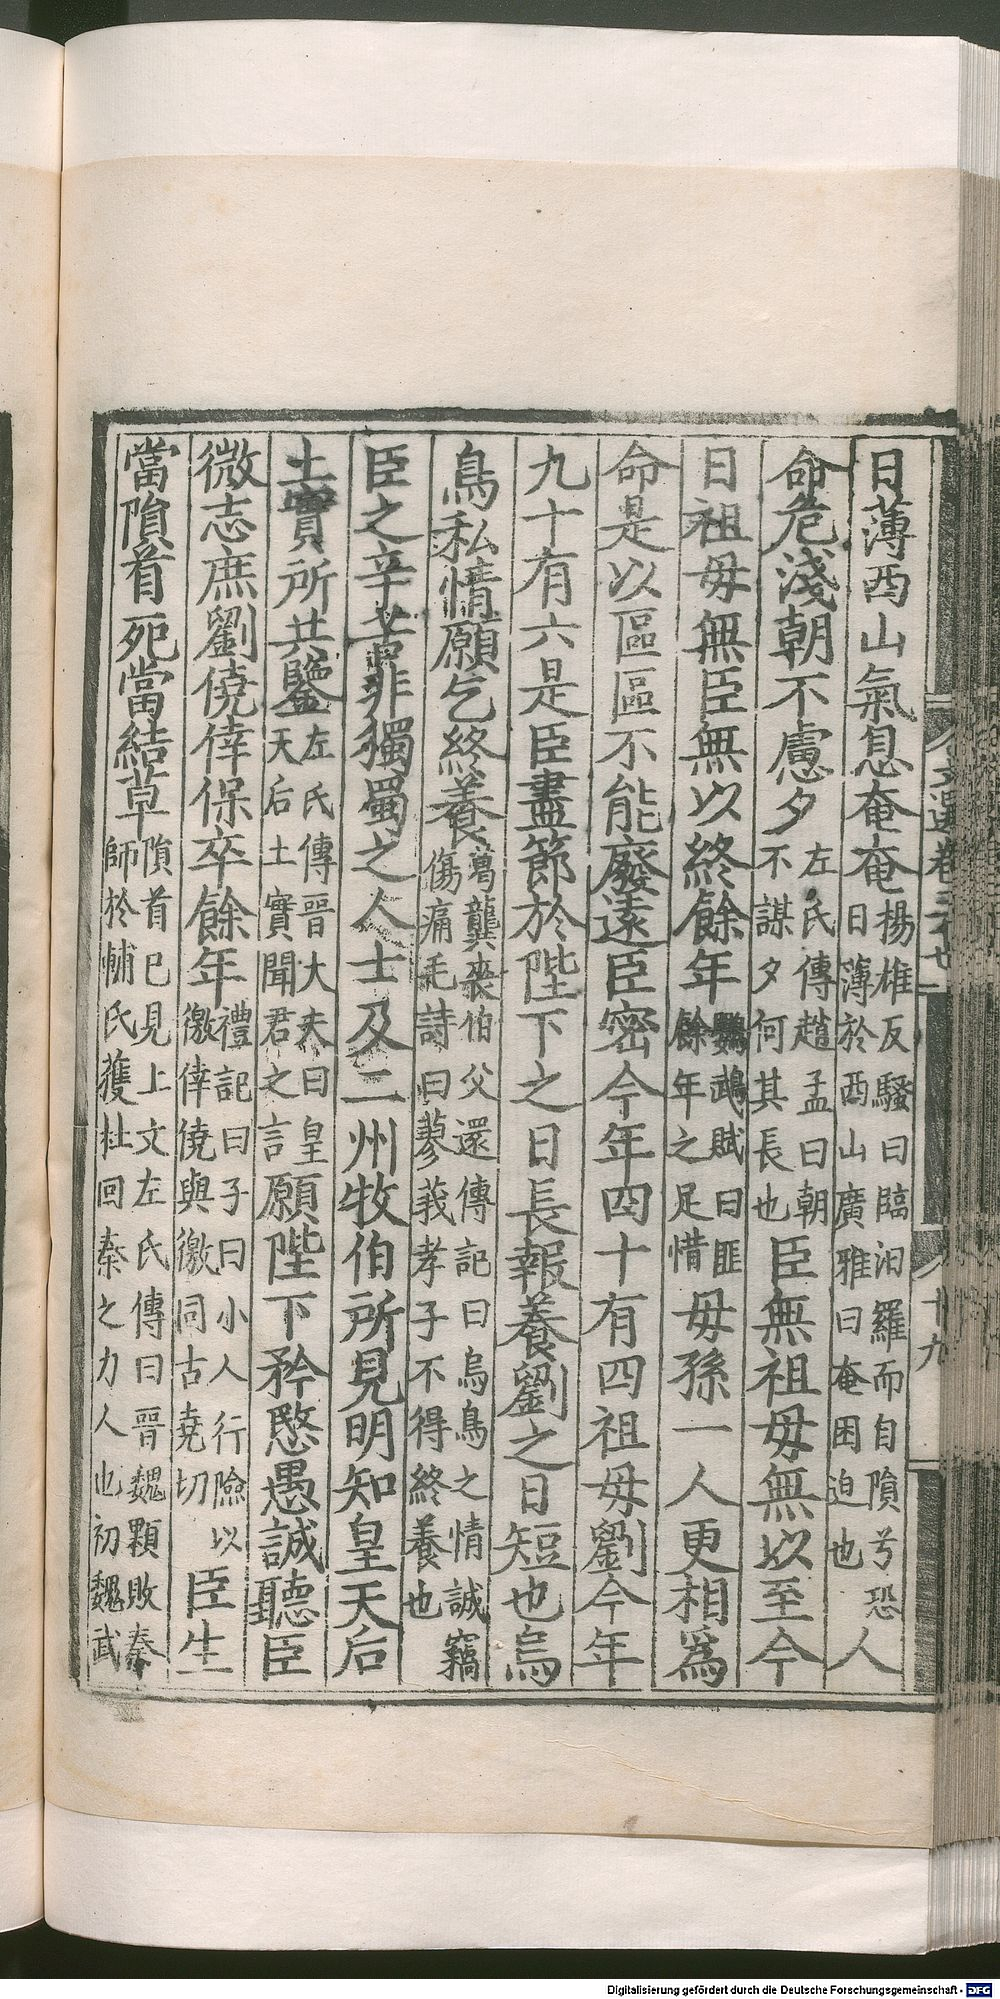 日薄西山氣息奄奄楊雄反騷曰臨汨羅而自隕兮恐日薄於西山廣雅曰奄困迫也人
命危淺朝不慮夕左氏傳趙孟曰朝不謀夕何其長也臣無祖毋無以至今
日祖毋無臣無以終餘年鸚鵡賦曰匪餘年之足惜毋孫一人更相爲
命是以區區不能廢遠臣密今年四十有四祖毋劉今年
九十有六是臣盡節於陛下之日長報養劉之日短也烏
鳥私情願乞終養葛龔喪伯父還傳記曰烏鳥之情誠竊傷痛毛詩曰蓼莪孝子不得終養也
臣之辛苦非獨蜀之人士及二州牧伯所見明知皇天后
土實所共鑒左氏傳晉大夫曰皇天后土實聞君之言願陛下矜愍愚誠聽臣
微志庶劉僥倖保卒餘年禮記曰子曰小人行險以徼倖僥與徼同古堯切臣生
當隕首死當結草隕首已見上文左氏傳曰晉魏顆敗秦師於輔氏獲杜回秦之力人也初魏武
文選卷三十七
十九
Digitalisierung gefördert durch die Deutsche Forschungsgemeinschaft - DFG